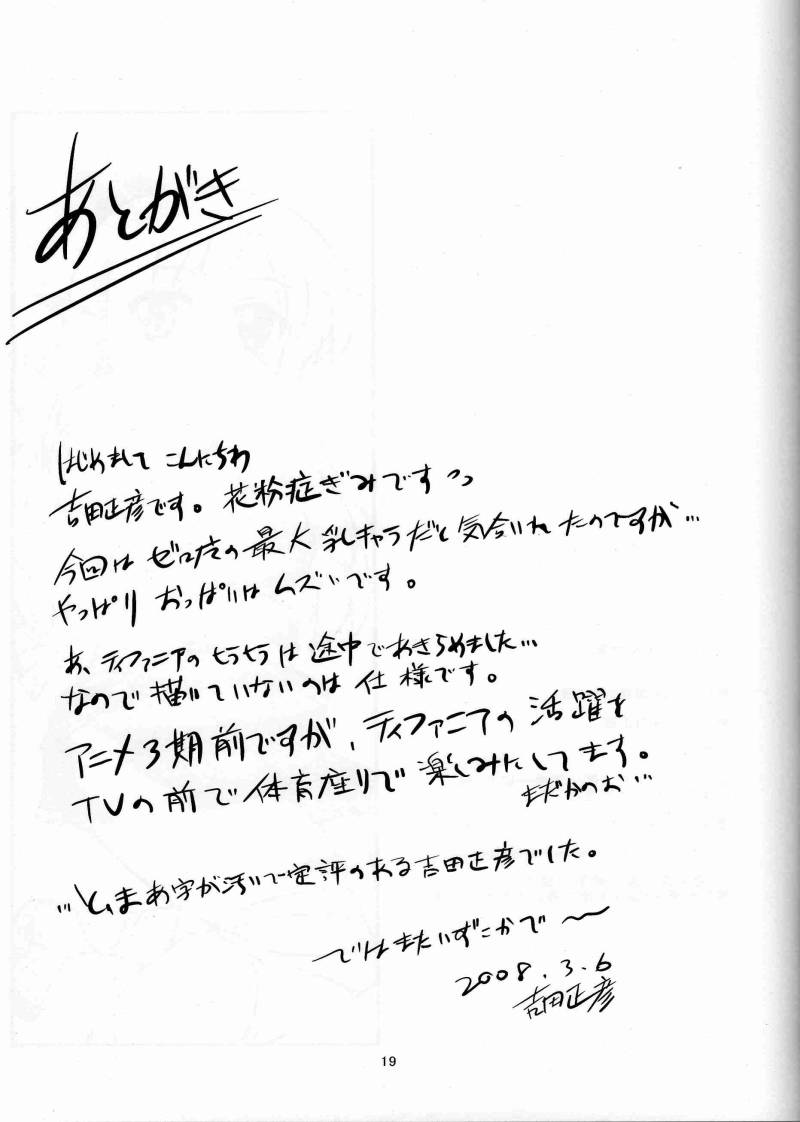 あとがき
はじめまして こんにちわ
吉田正彦です。花粉症ぎみですっっ
今回は ゼロ度の最大乳キャラだと気合いれたのですが…
やっぱり おっぱいは ムズいです。
あ、ティファニアのヒラヒラは途中であきらめました…
なので描いていないのは仕様です。
アニメ3期前ですが、ティファニアの活躍を
TVの前で体育座りで楽しみにしてます。
まだかのお…
…と、まあ字が汚いで定評のある吉田正彦でした。
ではまたいずこかで〜
2008.3.6
吉田正彦
19